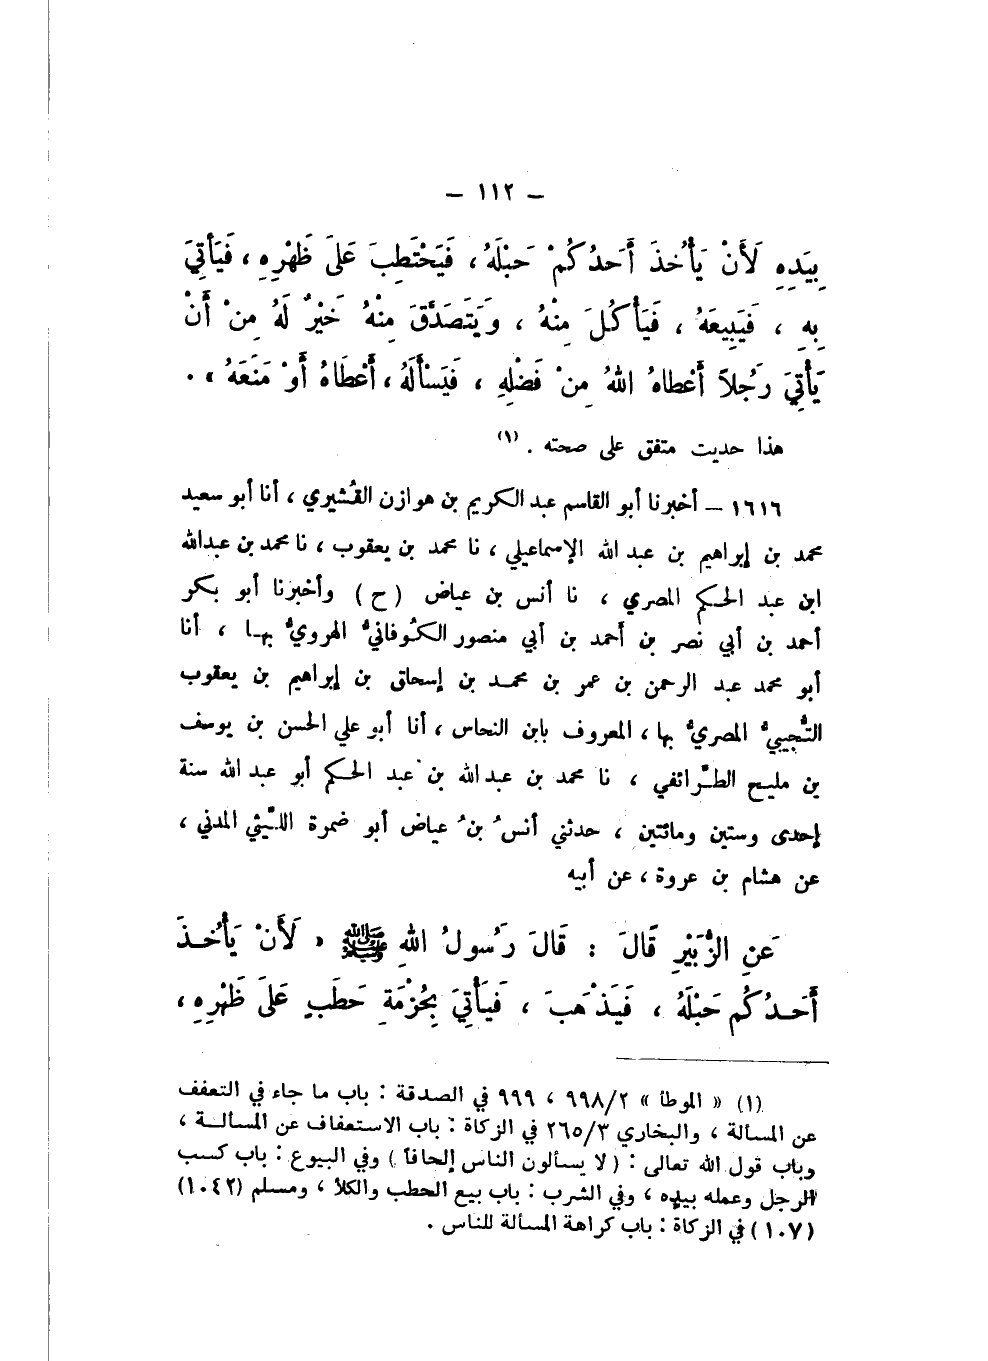 – ١١٢ –
بِيَدِهِ لَأَنْ يَأْخُذَ أَحَدُكُمْ حَبْلَهُ ، فَيَحْتَطِبَ عَلَى ظَهْرِهِ ، فَيَأْتِيَ
بِهِ ، فَيَبِيعَهُ ، فَيَأْكُلَ مِنْهُ ، وَيَتَصَدَّقَ مِنْهُ خَيْرٌ لَهُ مِنْ أَنْ
يَأْتِيَ رَجُلاً أَعْطاهُ اللهُ مِنْ فَضْلِهِ ، فَيَسْأَلَهُ ، أَعْطَاهُ أَوْ مَنَعَهُ » .
هذا حديث متفق على صحته . (١)
١٦١٦ – أخبرنا أبو القاسم عبد الكريم بن هوازن القُشيري ، أنا أبو سعيد
محمد بن إبراهيم بن عبد الله الإسماعيلي ، نا محمد بن يعقوب ، نا محمد بن عبدالله
ابن عبد الحكم المصري ، نا أنس بن عياض ( ح ) وأخبرنا أبو بكر
أحمد بن أبي نصر بن أحمد بن أبي منصور الكُوفانيُّ الهرويُّ بها ، أنا
أبو محمد عبد الرحمن بن عمر بن محمد بن إسحاق بن إبراهيم بن يعقوب
التُّجيبيُّ المصريُّ بها ، المعروف بابن النحاس ، أنا أبو علي الحسن بن يوسف
بن مليح الطَّرائفي ، نا محمد بن عبدالله بن عبد الحكم أبو عبد الله سنة
إحدى وستين ومائتين ، حدثني أنسُ بنُ عياض أبو ضمرة اللَّيثي المدني ،
عن هشام بن عروة ، عن أبيه
عَنِ الزُّبَيْرِ قَالَ : قَالَ رَسُولُ اللهِ ﷺ « لَأَنْ يَأْخُذَ
أَحَدُكُم حَبْلَهُ ، فَيَذْهَبَ ، فَيَأْتِيَ بِحُزْمَةِ حَطَبٍ عَلَى ظَهْرِهِ ،
(١) « الموطأ » ٩٩٨/٢ ، ٩٩٩ في الصدقة : باب ما جاء في التعفف
عن المسألة ، والبخاري ٢٦٥/٣ في الزكاة : باب الاستعفاف عن المسألة ،
وباب قول الله تعالى : ( لا يسألون الناس إلحافاً ) وفي البيوع : باب كسب
الرجل وعمله بيده ، وفي الشرب : باب بيع الحطب والكلأ ، ومسلم (١٠٤٢)
(١٠٧) في الزكاة : باب كراهة المسألة للناس .